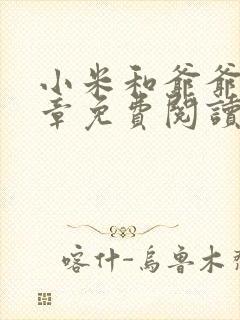 小米和爺爺
章免費閱讀
喀什-烏魯木齊